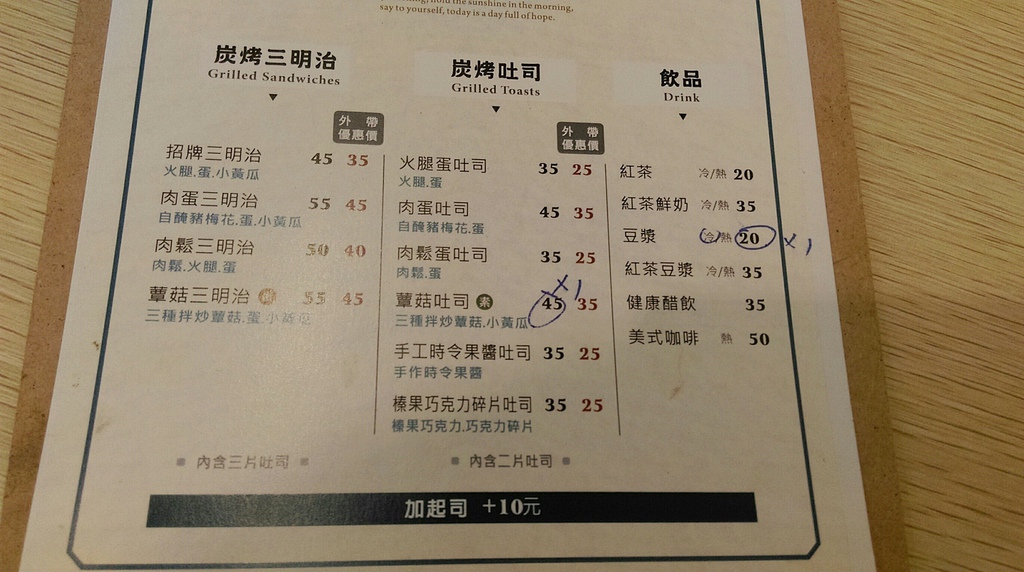 hold the sunshine in the morning,
say to yourself, today is a day full of hope.
炭烤三明治
Grilled Sandwiches
外帶
優惠價
招牌三明治 45 35
火腿.蛋.小黃瓜
肉蛋三明治 55 45
自醃豬梅花.蛋.小黃瓜
肉鬆三明治 50 40
肉鬆.火腿.蛋
蕈菇三明治 素 55 45
三種拌炒蕈菇.蛋.小黃瓜
內含三片吐司
炭烤吐司
Grilled Toasts
外帶
優惠價
火腿蛋吐司 35 25
火腿.蛋
肉蛋吐司 45 35
自醃豬梅花.蛋
肉鬆蛋吐司 35 25
肉鬆.蛋
x1
蕈菇吐司 素 45 35
三種拌炒蕈菇.小黃瓜
手工時令果醬吐司 35 25
手作時令果醬
榛果巧克力碎片吐司 35 25
榛果巧克力.巧克力碎片
內含二片吐司
飲品
Drink
紅茶 冷/熱 20
紅茶鮮奶 冷/熱 35
豆漿 冷/熱 20 x1
紅茶豆漿 冷/熱 35
健康醋飲 35
美式咖啡 熱 50
加起司 +10元